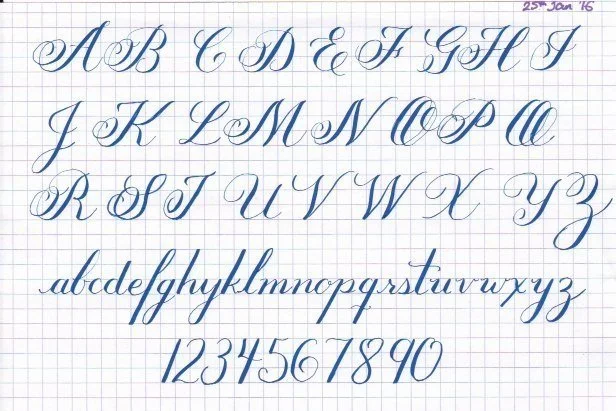 25th Jan '16
A B C D E F G H I
J K L M N O P Q
R S T U V W X Y Z
abcdefghijklmnopqrstuvwxyz
1234567890